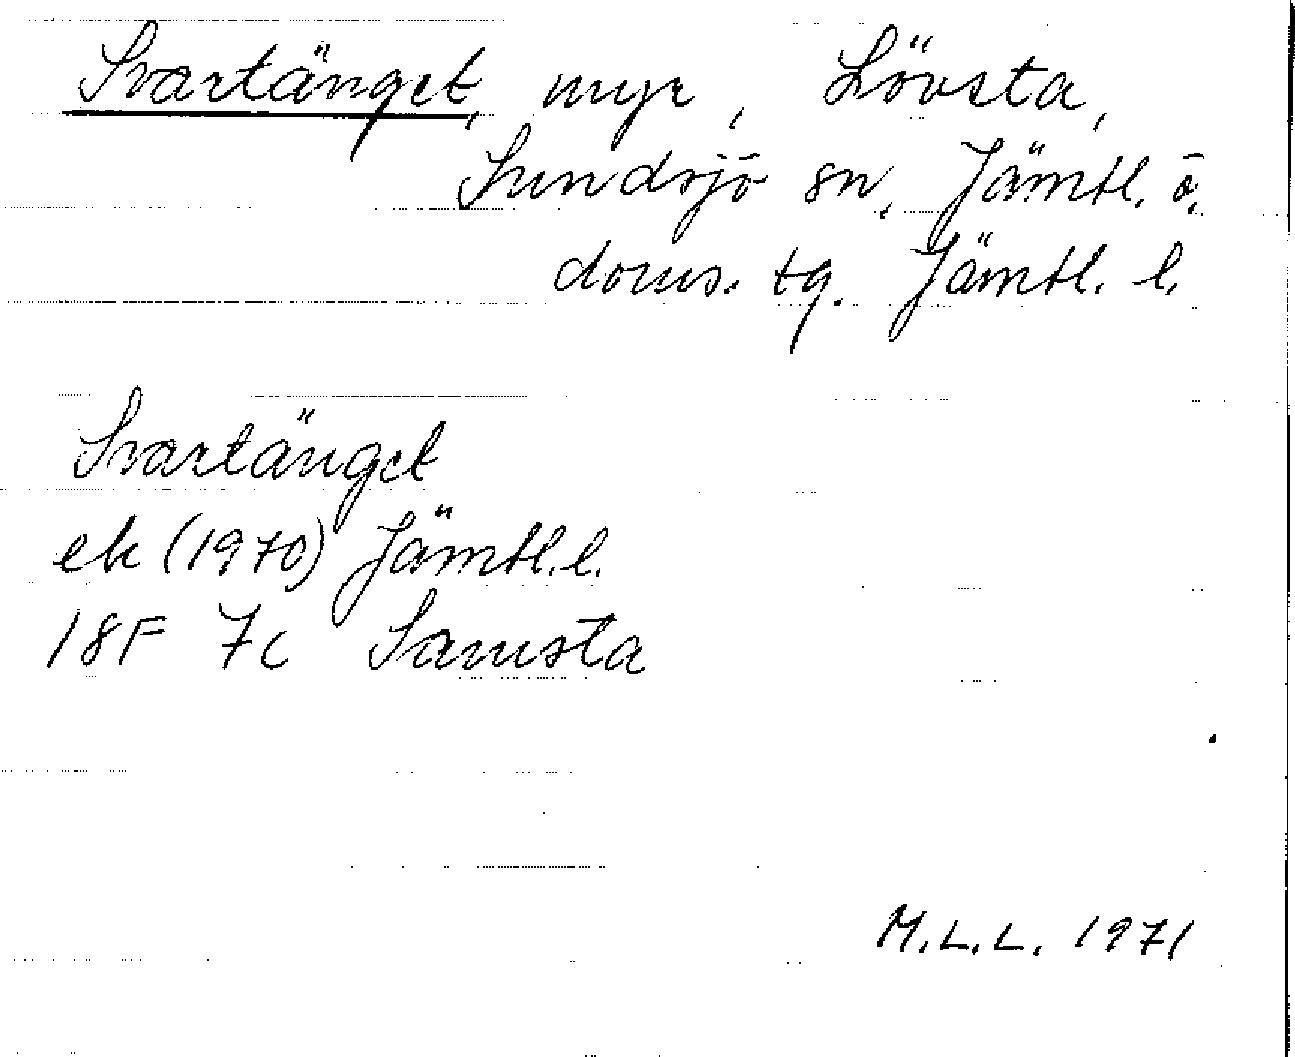 Svartänget, myr, Lövsta,
Sundsjö sn, Jämtl. ö.
doms. tg. Jämtl. l.
Svartänget
ek (1970) Jämtl. l.
18F 7c Samsta
M.L.L. 1971